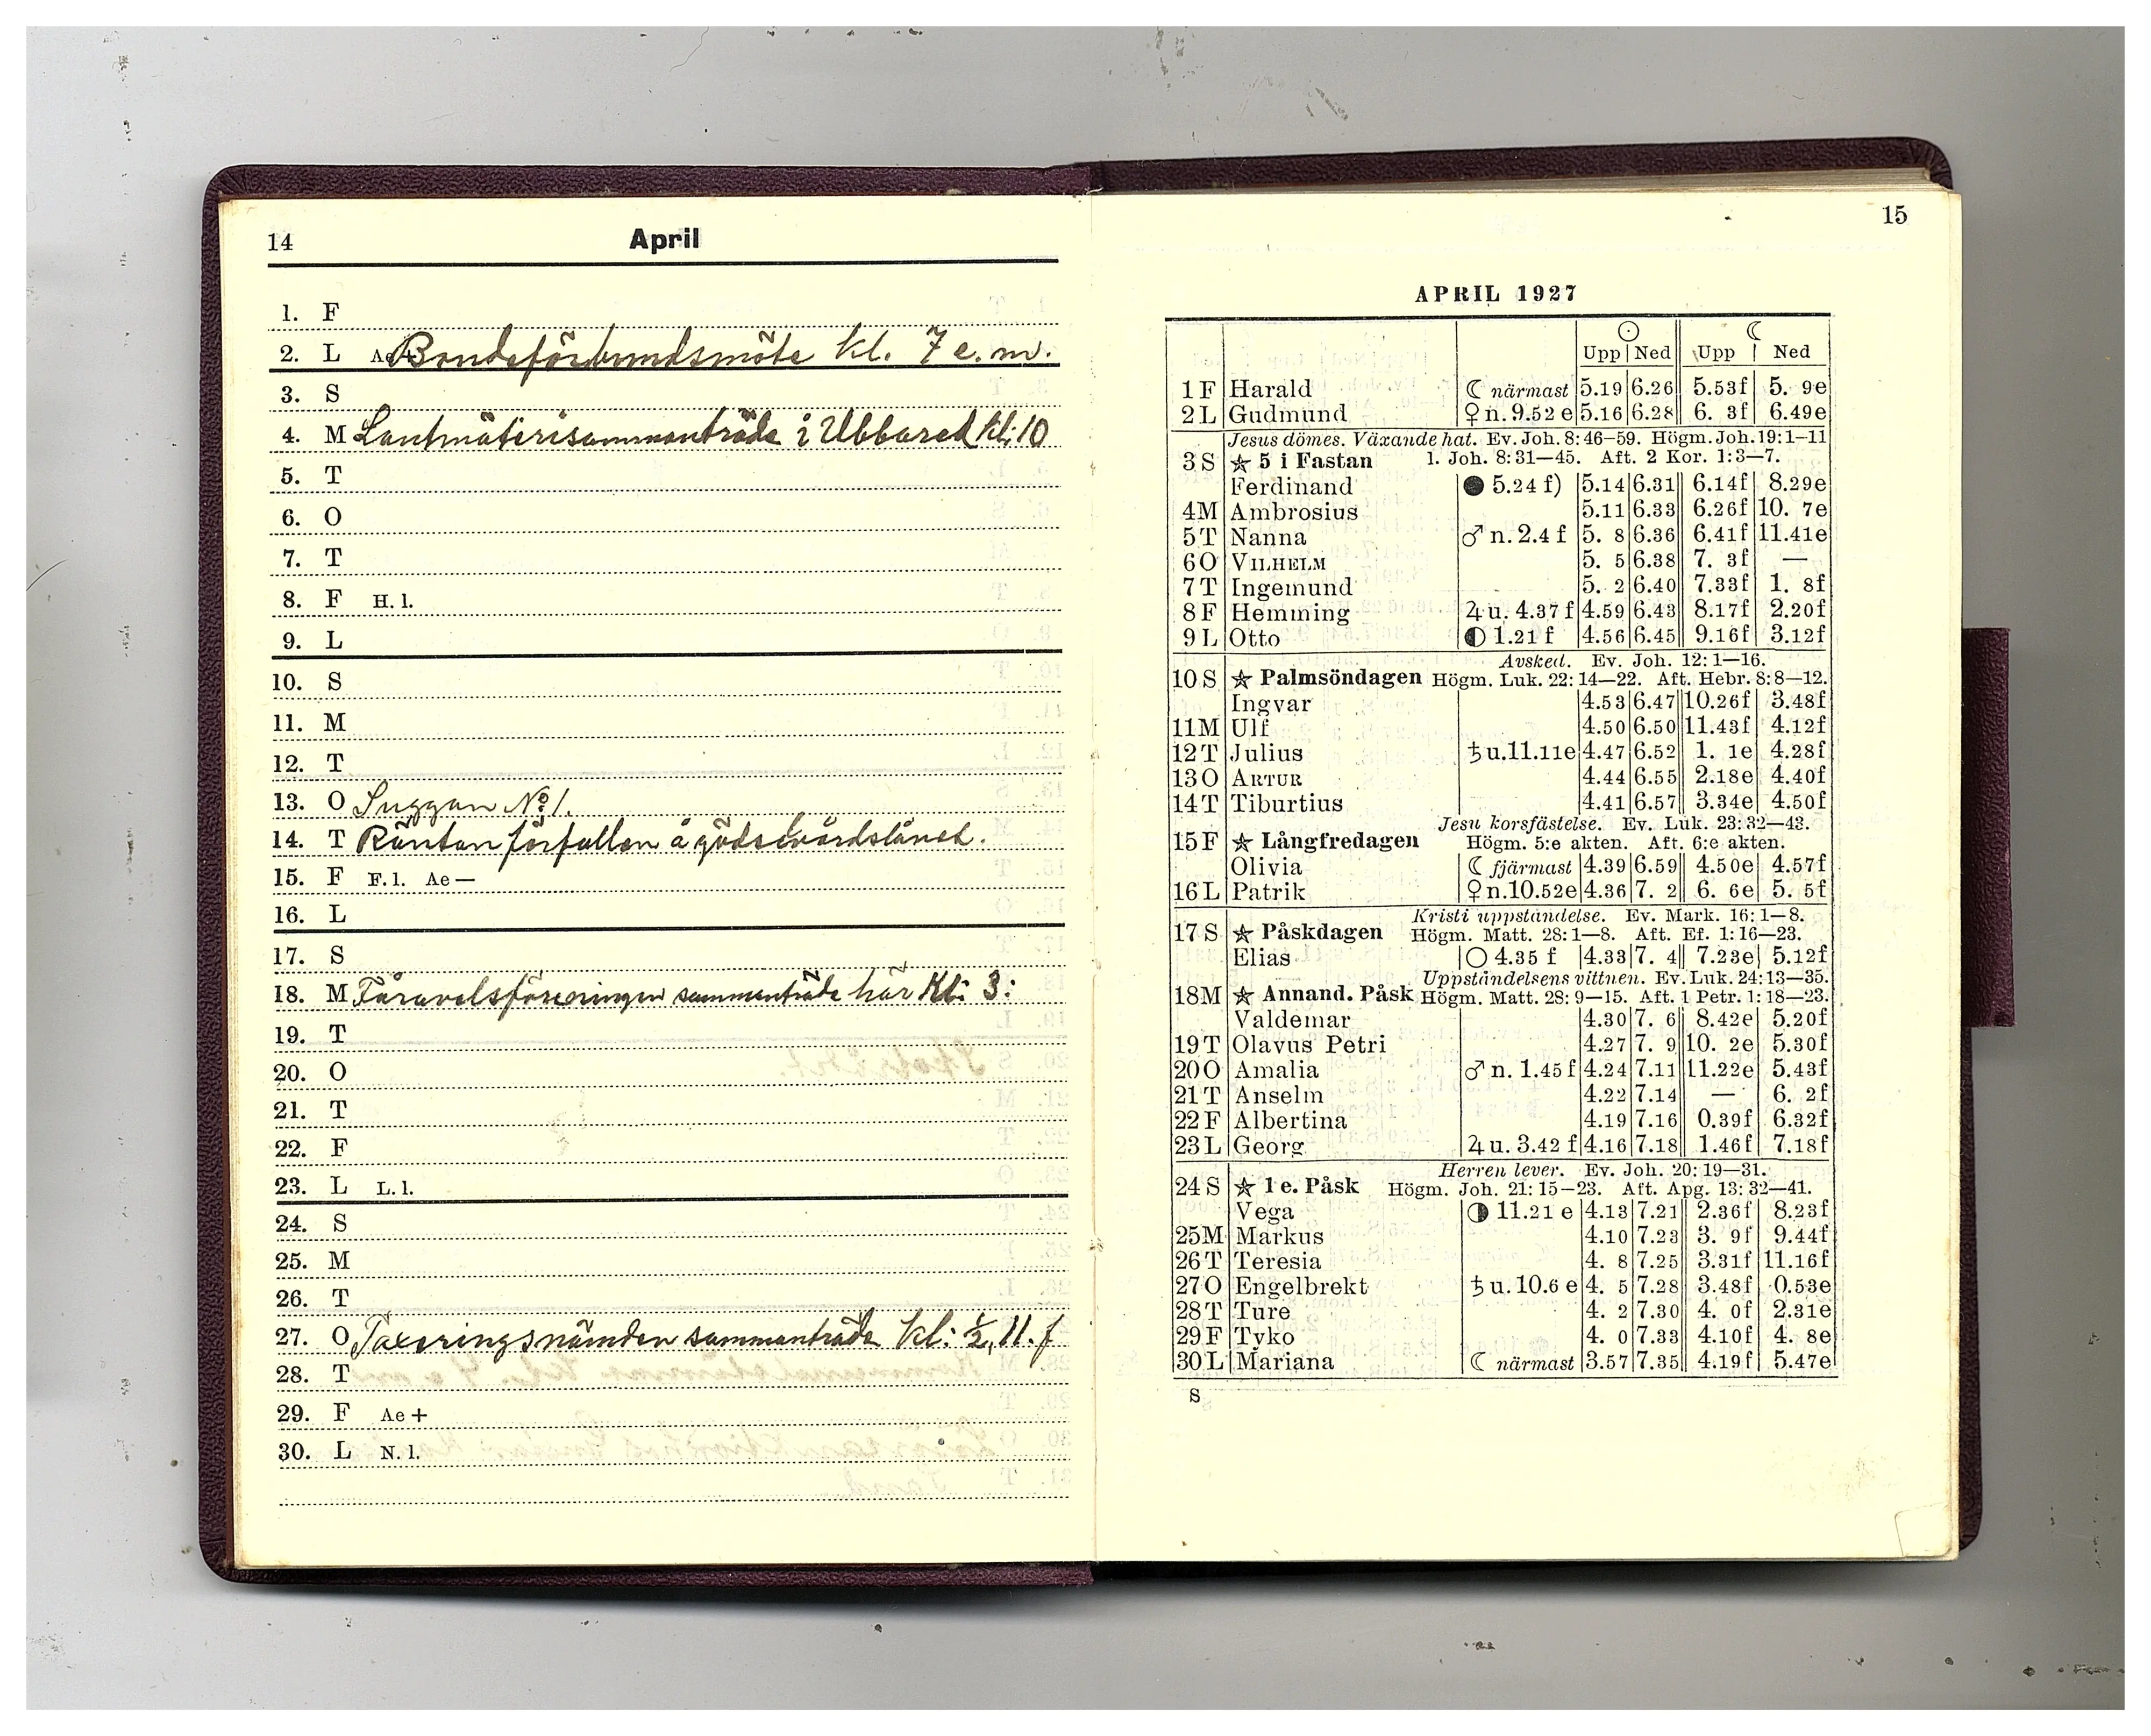 14
April
1. F
2. L Ae+ Bondeförbundsmöte kl. 7 e. m.
3. S
4. M Lantmäterisammanträde i Ubbared kl: 10
5. T
6. O
7. T
8. F H. l.
9. L
10. S
11. M
12. T
13. O Suggan No 1.
14. T Räntan förfallen å gödselvårdslånet.
15. F F. l. Ae —
16. L
17. S
18. M Fåravelsföreningen sammanträde här Kl: 3:
19. T
20. O
21. T
22. F
23. L L. l.
24. S
25. M
26. T
27. O Taxeringsnämden sammanträde kl: ½ 11. f
28. T
29. F Ae +
30. L N. l.
15
APRIL 1927
☉ ☾
Upp Ned Upp Ned
1 F Harald ☾ närmast 5.19 6.26 5.53f 5. 9e
2 L Gudmund ♀ n. 9.52 e 5.16 6.28 6. 3f 6.49e
Jesus dömes. Växande hat. Ev. Joh. 8: 46—59. Högm. Joh. 19: 1—11
3 S ☆ 5 i Fastan 1. Joh. 8: 31—45. Aft. 2 Kor. 1: 3—7.
Ferdinand ● 5.24 f) 5.14 6.31 6.14f 8.29e
4 M Ambrosius 5.11 6.33 6.26f 10. 7e
5 T Nanna ♂ n. 2.4 f 5. 8 6.36 6.41f 11.41e
6 O VILHELM 5. 5 6.38 7. 3f —
7 T Ingemund 5. 2 6.40 7.33f 1. 8f
8 F Hemming ♃ u. 4.37 f 4.59 6.43 8.17f 2.20f
9 L Otto ◐ 1.21 f 4.56 6.45 9.16f 3.12f
Avsked. Ev. Joh. 12: 1—16.
10 S ☆ Palmsöndagen Högm. Luk. 22: 14—22. Aft. Hebr. 8: 8—12.
Ingvar 4.53 6.47 10.26f 3.48f
11 M Ulf 4.50 6.50 11.43f 4.12f
12 T Julius ♄ u. 11.11e 4.47 6.52 1. 1e 4.28f
13 O ARTUR 4.44 6.55 2.18e 4.40f
14 T Tiburtius 4.41 6.57 3.34e 4.50f
Jesu korsfästelse. Ev. Luk. 23: 32—43.
15 F ☆ Långfredagen Högm. 5:e akten. Aft. 6:e akten.
Olivia ☾ fjärmast 4.39 6.59 4.50e 4.57f
16 L Patrik ♀ n. 10.52e 4.36 7. 2 6. 6e 5. 5f
Kristi uppståndelse. Ev. Mark. 16: 1—8.
17 S ☆ Påskdagen Högm. Matt. 28: 1—8. Aft. Ef. 1: 16—23.
Elias ○ 4.35 f 4.33 7. 4 7.23e 5.12f
Uppståndelsens vittnen. Ev. Luk. 24: 13—35.
18 M ☆ Annand. Påsk Högm. Matt. 28: 9—15. Aft. 1 Petr. 1: 18—23.
Valdemar 4.30 7. 6 8.42e 5.20f
19 T Olavus Petri 4.27 7. 9 10. 2e 5.30f
20 O Amalia ♂ n. 1.45 f 4.24 7.11 11.22e 5.43f
21 T Anselm 4.22 7.14 — 6. 2f
22 F Albertina 4.19 7.16 0.39f 6.32f
23 L Georg ♃ u. 3.42 f 4.16 7.18 1.46f 7.18f
Herren lever. Ev. Joh. 20: 19—31.
24 S ☆ 1 e. Påsk Högm. Joh. 21: 15—23. Aft. Apg. 13: 32—41.
Vega ◑ 11.21 e 4.13 7.21 2.36f 8.23f
25 M Markus 4.10 7.23 3. 9f 9.44f
26 T Teresia 4. 8 7.25 3.31f 11.16f
27 O Engelbrekt ♄ u. 10.6 e 4. 5 7.28 3.48f 0.53e
28 T Ture 4. 2 7.30 4. 0f 2.31e
29 F Tyko 4. 0 7.33 4.10f 4. 8e
30 L Mariana ☾ närmast 3.57 7.35 4.19f 5.47e
S